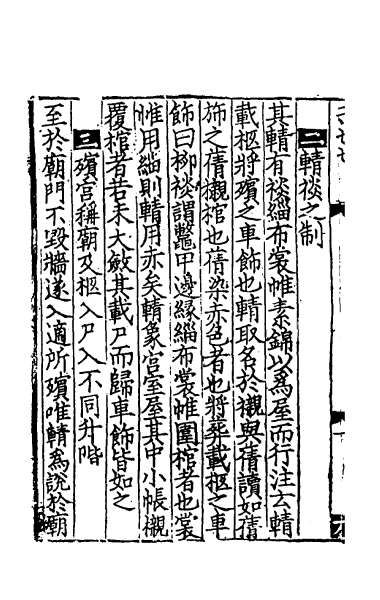 二輤裧之制
其輤有裧緇布裳帷素錦以為屋而行注云輤
載柩將殯之車飾也輤取名於櫬與蒨讀如蒨
斾之蒨櫬棺也蒨染赤色者也將葬載柩之車
飾曰柳裧謂鼈甲邊緣緇布裳帷圍棺者也裳
帷用緇則輤用赤矣輤象宮室屋其中小帳襯
覆棺者若未大斂其載尸而歸車飾皆如之
三殯宮稱廟及柩入尸入不同升階
至於廟門不毀牆遂入適所殯唯輤為説於廟